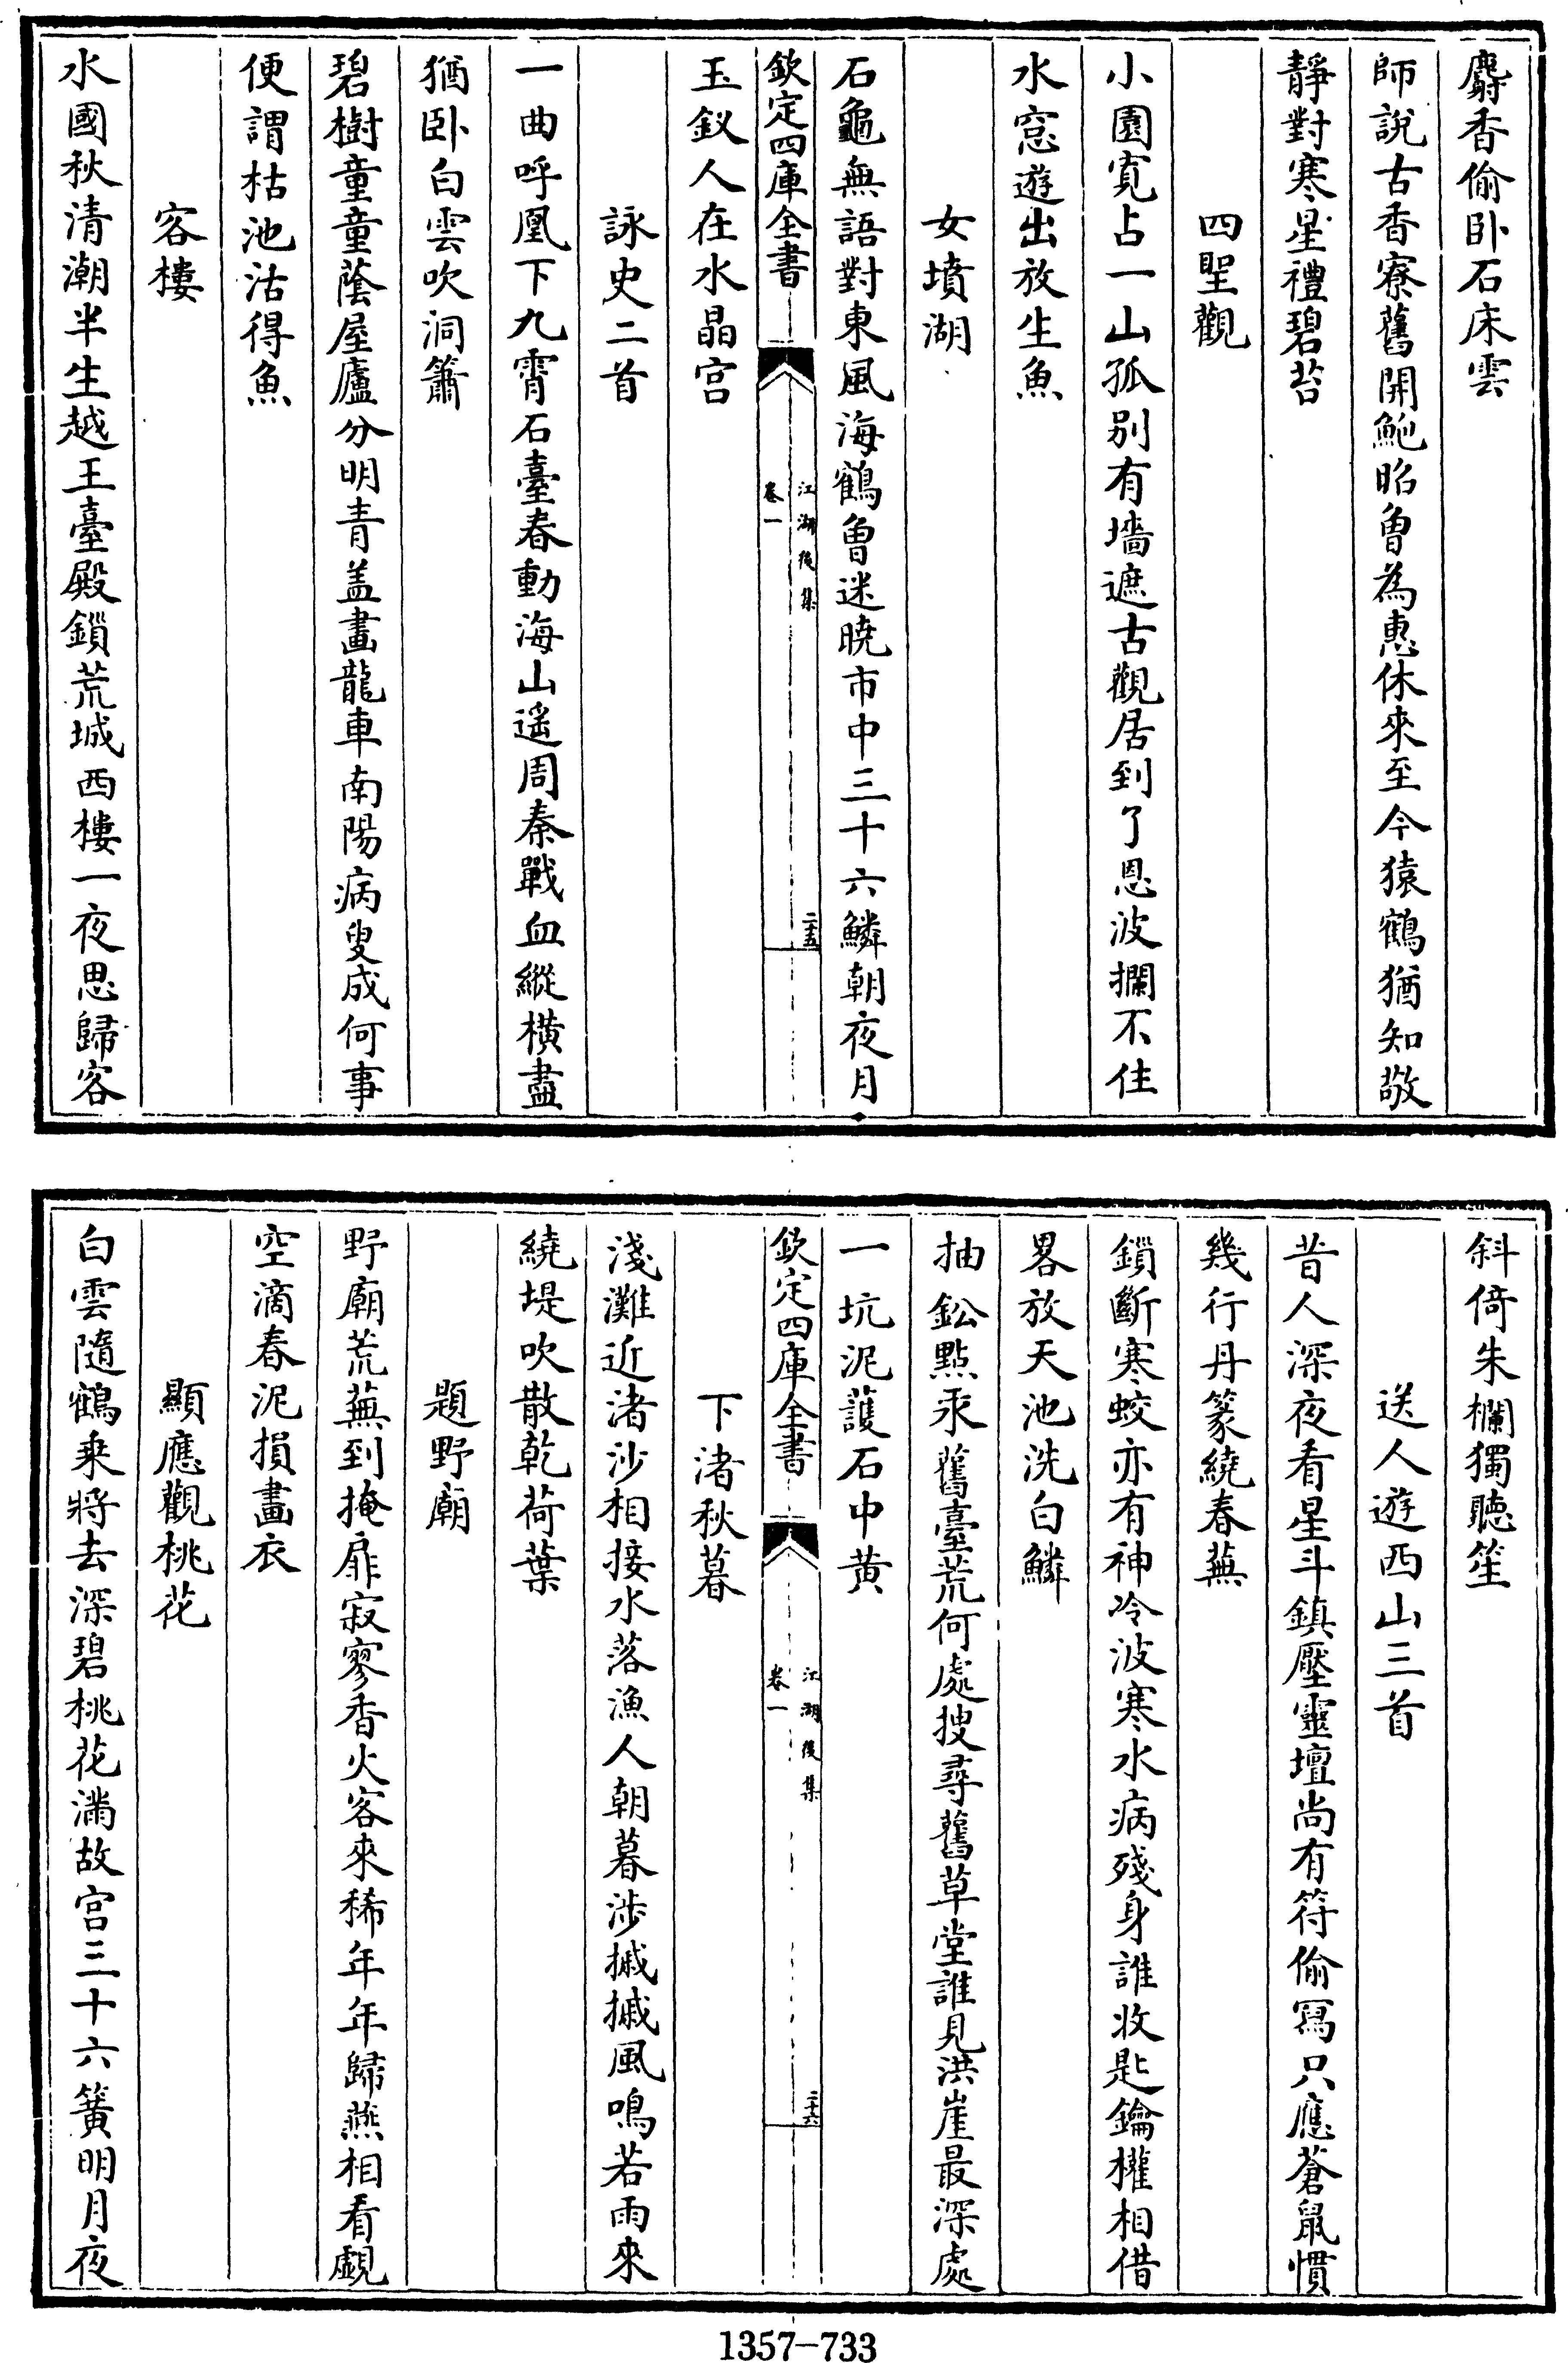 麝香偷卧石床雲
師說古香寮舊開鮑昭曾為惠休來至今猿鶴猶知敬
靜對寒星禮碧苔
四聖觀
小園寛占一山孤别有墻遮古觀居到了恩波攔不住
水窓遊出放生魚
女墳湖
石龜無語對東風海鶴曾迷曉市中三十六鱗朝夜月
欽定四庫全書
江湖後集
卷一
二十五
玉釵人在水晶宫
詠史二首
一曲呼凰下九霄石臺春動海山遥周秦戰血縱横盡
猶卧白雲吹洞簫
碧樹童童蔭屋廬分明青盖畫龍車南陽病叟成何事
便謂枯池沽得魚
客樓
水國秋清潮半生越王臺殿鎻荒城西樓一夜思歸客
斜倚朱欄獨聽笙
送人遊西山三首
昔人深夜看星斗鎮壓靈壇尚有符偷寫只應蒼鼠慣
幾行丹篆繞春蕪
鎻斷寒蛟亦有神冷波寒水病殘身誰收匙鑰權相借
畧放天池洗白鱗
抽鈆點汞舊臺荒何處搜尋舊草堂誰見洪崖最深處
一坑泥護石中黄
欽定四庫全書
江湖後集
卷一
二十六
下渚秋暮
淺灘近渚沙相接水落漁人朝暮涉摵摵風鳴若雨來
繞堤吹散乾荷葉
題野廟
野廟荒蕪到掩扉寂寥香火客來稀年年歸燕相看覷
空滴春泥損畫衣
顯應觀桃花
白雲隨鶴乗將去深碧桃花滿故宫三十六簧明月夜
1357-733